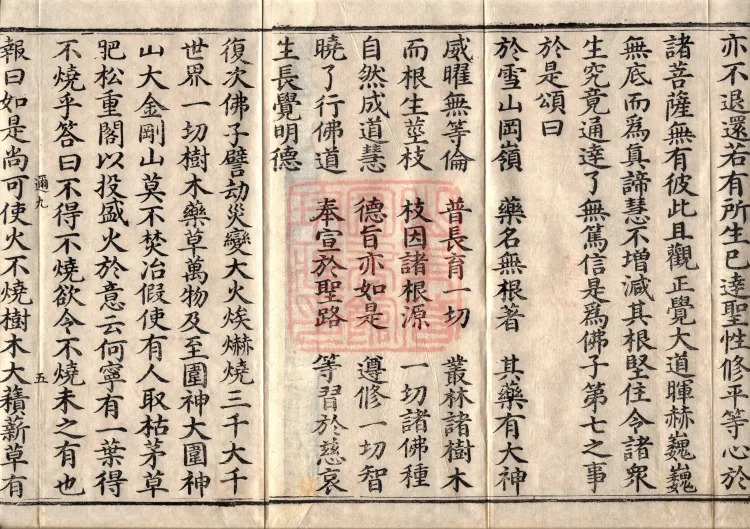 亦不退還若有所生已達聖性修平等心於
諸菩薩無有彼此且觀正覺大道暉赫巍巍
無底而爲真諦慧不增減其根堅住令諸衆
生究竟通達了無篤信是爲佛子第七之事
於是頌曰
於雪山岡嶺 藥名無根著 其藥有大神
威曜無等倫 普長育一切 叢林諸樹木
而根生莖枝 枝因諸根源 一切諸佛種
自然成道慧 德旨亦如是 遵修一切智
曉了行佛道 奉宣於聖路 等習於慈哀
生長覺明德
復次佛子譬劫災變大火焂爀燒三千大千
世界一切樹木藥草萬物及至圍神大圍神
山大金剛山莫不焚冶假使有人取枯茅草
肥松重閣以投盛火於意云何寧有一葉得
不燒乎荅曰不得不燒欲令不燒未之有也
邇九 五
報曰如是尚可使火不燒樹木大積薪草有